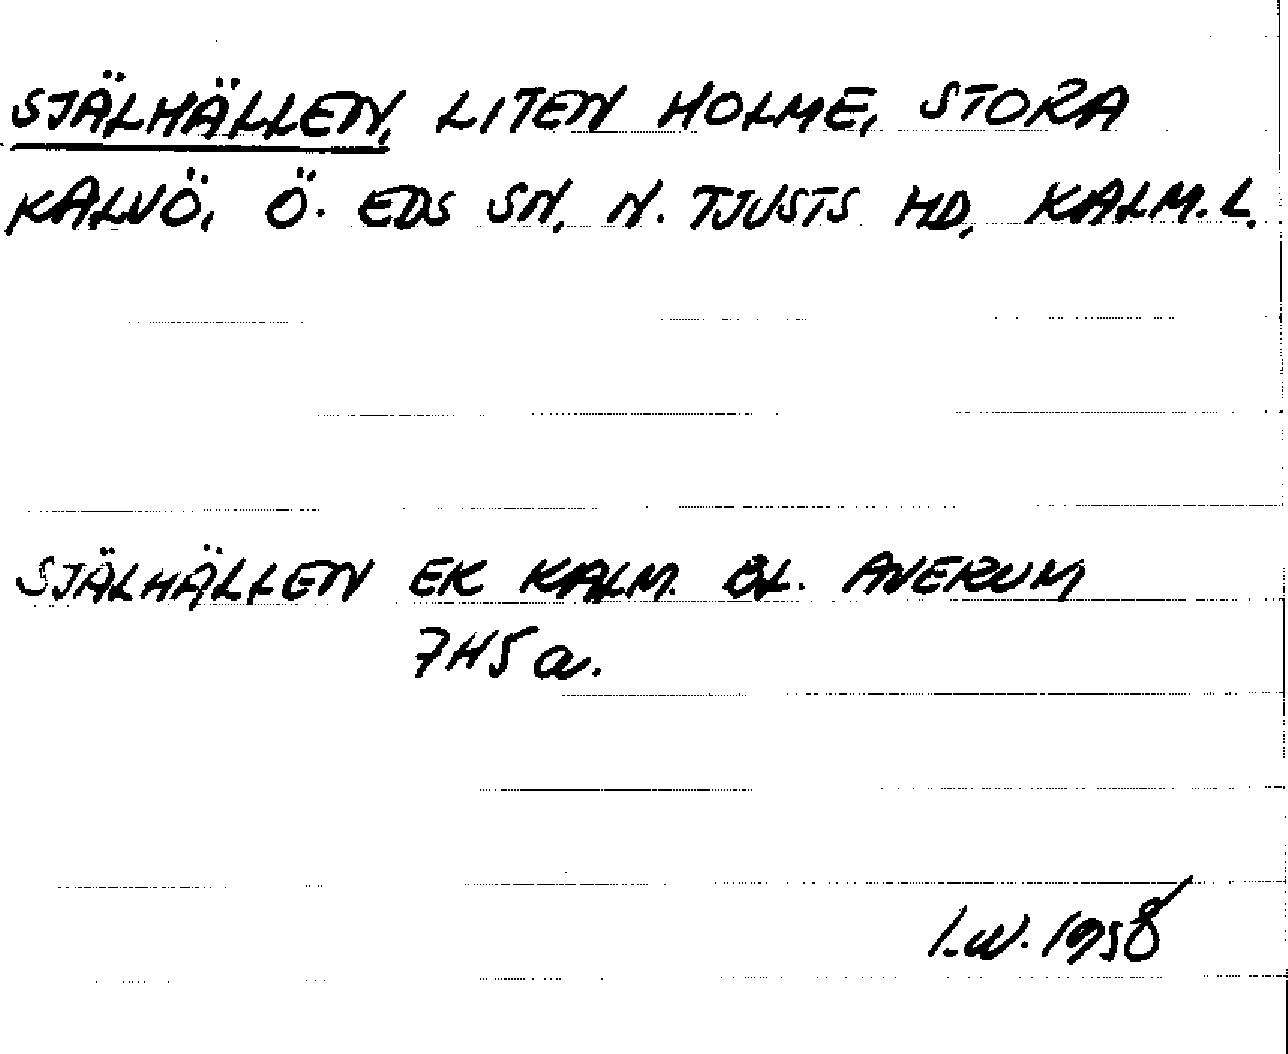 SJÄLHÄLLEN, LITEN HOLME, STORA
KALVÖ, Ö. EDS SN, N. TJUSTS HD, KALM. L.
SJÄLHÄLLEN EK KALM. BL. AVERUM
7H5a.
I.W. 1958